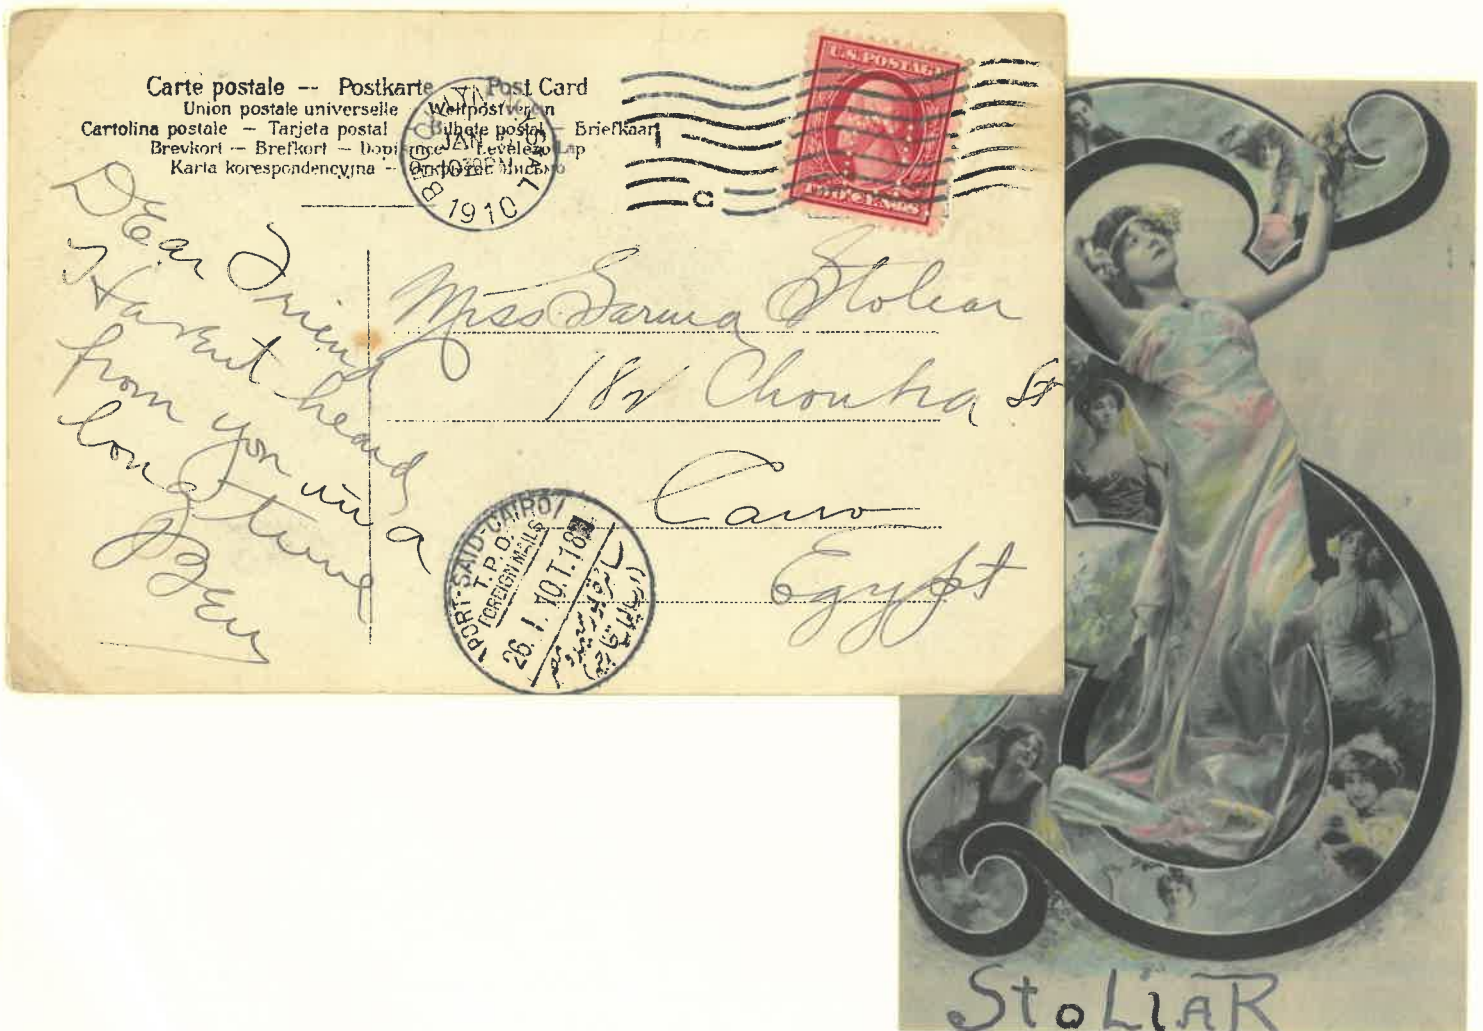 Carte postale -- Postkarte Post Card
Union postale universelle Weltpostverein
Cartolina postale — Tarjeta postal — postal — Briefkaart
Brevkort — Brefkort — Levelező Lap
Karta korespondencyjna — Открытое письмо
BROOKLYN
JAN
1910
U.S. POSTAGE
TWO CENTS
C
Dear Friend
Havent heard
from you in a
long time
Ben
Miss Sarina Stoliar
182 Choubra St
Cairo
Egypt
PORT-SAID-CAIRO
T.P.O.
FOREIGN MAILS
26.I.10.T.18
StoLiAR